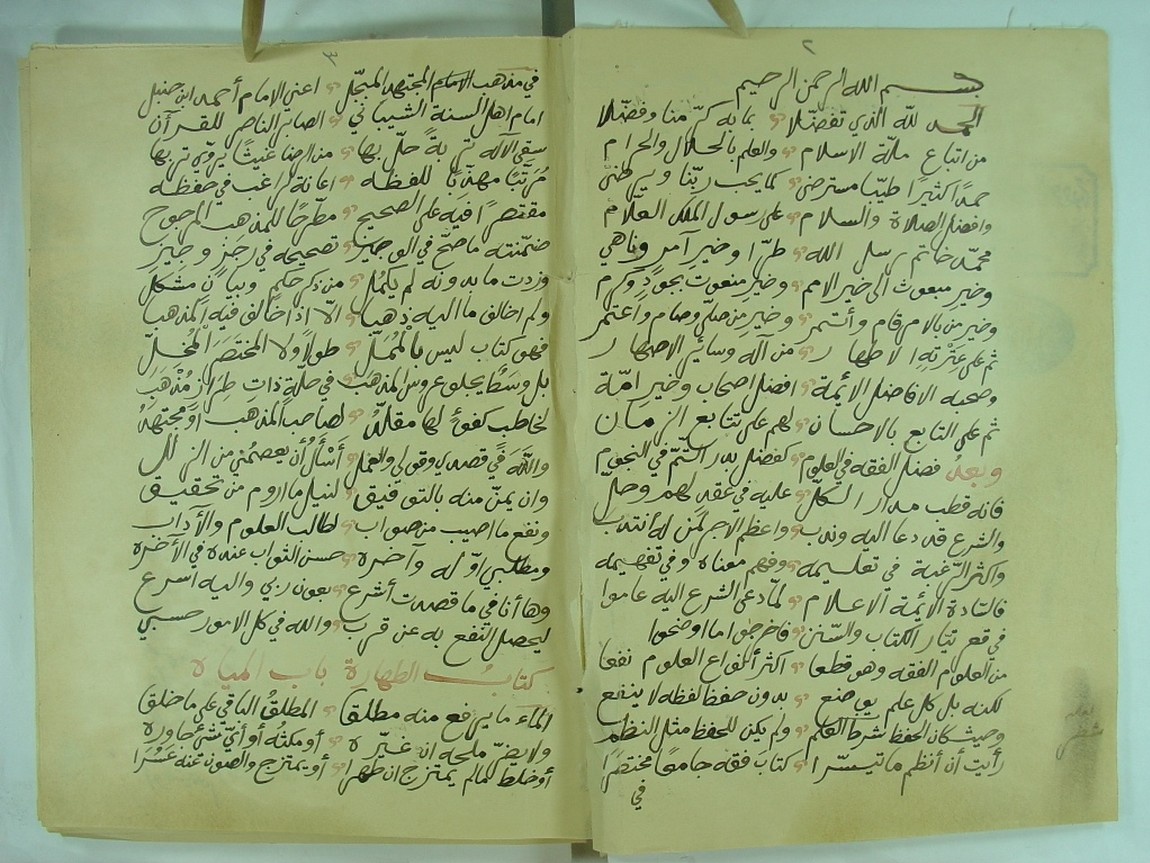 ٢
بسم الله الرحمن الرحيم
الحمد لله الذي تفضّلا بمابه كرّمنا وفضّلا
من اتباع ملّة الاسلام والعلم بالحلال والحرام
حمدًا كثيرًا طيّبًا مسترضى كما يحب ربّنا ويرضى
وافضل الصلاة والسلام على رسول الملك العلّام
محمّد خاتم رسل الله طرّا وخير آمر وناهي
وخير مبعوث الى خير الامم وخير منعوت بجودٍ وكرم
وخير من بالامر قام وأتمر وخير من صلّى وصام واعتمر
ثم على عترته الاطهار من آله وسائر الاصهار
وصحبه الافاضل الائمة افضل اصحاب وخير امّة
ثم على التابع بالاحسان لهم على تتابع الزمان
وبعدُ فضل الفقه في العلوم كفضل بدر التّم في النجوم
فانه قطب مدار الكلّ عليه في عقد لهم وحلّ
والشرع قد دعا اليه وندب واعظم الاجر لمن له انتدب
واكثر الرّغبة في تعليمه وفهم معناه وفي تفهيمه
فالسّادة الائمة الاعلام لمّا دعى الشرع اليه عاموا
في قعر تيّار الكتاب والسّنن فاخرجوا
من العلوم الفقه وهو قطعا اكثر انواع العلوم نفعا
لكنه بل كل علم يوضع بدون حفظ لفظه لا ينفع
وحيث كان الحفظ شرط العلم ولم يكن للحفظ مثل النظم
رأيت أن أنظم ما تيسّرا كتاب فقه جامعًا مختصرًا
في
٣
في مذهب الامام المجتهد المبجّل اعني الامام أحمد ابن حنبل
امام اهل السنة الشيباني الصابر الناصر للقرآن
سقى الآله تربةً حلّ بها من الرضا غيثًا يروّي تربها
مُرتّبًا مهذّبًا للفظه اعانة لراغب في حفظه
مقتصرًا فيه على الصحيح مطّرحًا للمذهب المرجوح
ضمّنته ما صحّ في الوجيز تصحيحه في رجز وجيز
وزدت ما بدونه لم يكمُل من ذكر حكم وبيان مشكل
ولم اخالف ما اليه ذهبا الّا اذا خالف فيه المذهبا
فهو كتاب ليس بالمُملّ طولاً ولا المختصر المُخلّ
بل وسَطًا يجلو عروس المذهب في حلّةٍ ذاتِ طِرازٍ مُذْهَب
لخاطب كفوءٍ لها مقلّد لصاحب المذهب أو مجتهد
واللهَ في قصدي وقولي والعمل أسأل أن يعصمني من الزلل
وان يمنّ منه بالتوفيق لنيل ما اروم من تحقيق
ونفع ما اصيب من صواب لطالب العلوم والآداب
ومطلبي اوّله وآخره حسن الثواب عنده في الآخره
وها أنا في ما قصدت أشرع بعون ربي واليه اسرع
ليحصل النفع به عن قرب والله في كل الامور حسبي
كتابُ الطهارة باب المياه
الماء ما يرفع منه مطلق المطلقُ الباقي على ما خلق
ولا يضرّ ملحه ان غيّره أو مكثُه أو أيّ شيء جاوره
أو خلط مالم يمتزج ان طهرا أو يمتزج والصون عنه عَسُرا